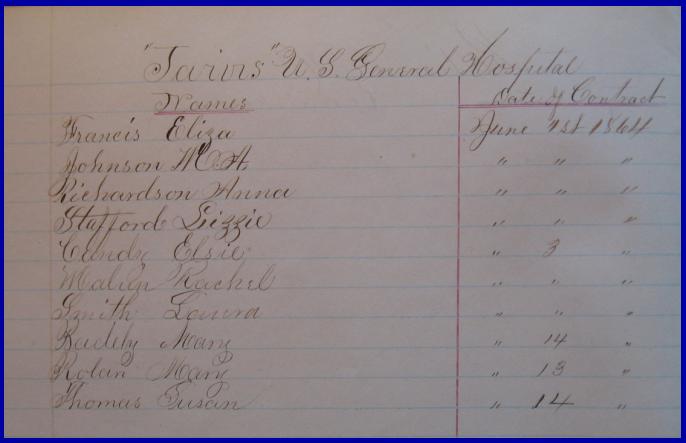 "Jarvis" U.S. General Hospital
Names Date of Contract
Francis Eliza June 1st 1864
Johnson M. A. " " "
Richardson Anna " " "
Stafford Lizzie " " "
Elsie " 3 "
Rachel " " "
Smith Laura " " "
Mary " 14 "
Mary " 13 "
Thomas Susan " 14 "